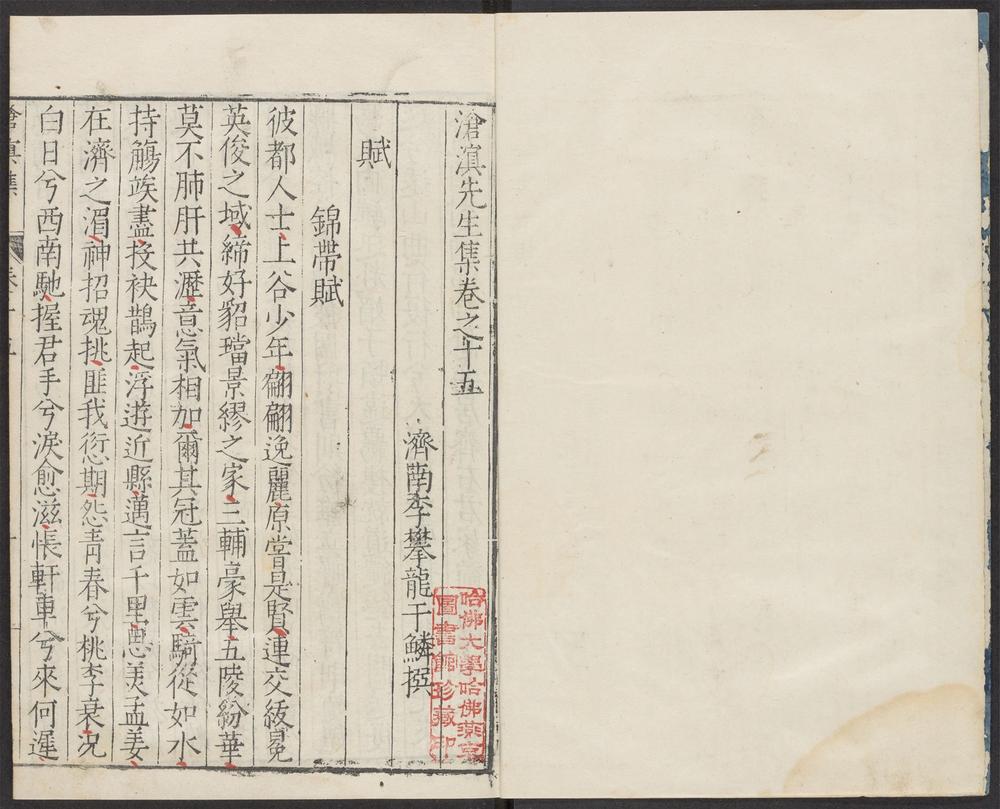 滄溟先生集卷之十五
濟南李攀龍于鱗撰
賦
錦帶賦
彼都人士上谷少年翩翩逸麗原嘗是賢連交綴冕
英俊之域締好貂璫景繆之家三輔豪舉五陵紛華
莫不肺肝共瀝意氣相加爾其冠蓋如雲騎從如水
持觴竢盡投袂鵲起浮遊近縣邁言千里思美孟姜
在濟之湄神招魂挑匪我愆期怨青春兮桃李衰况
白日兮西南馳握君手兮淚愈滋悵軒車兮來何遲
滄溟集
哈佛大學哈佛燕京
圖書館珍藏印